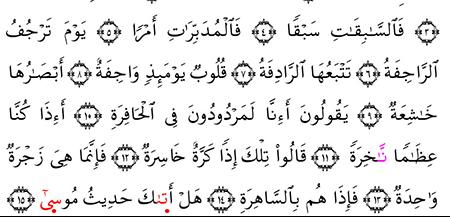 ﴿٣﴾ فَٱلسَّـٰبِقَـٰتِ سَبْقًا ﴿٤﴾ فَٱلْمُدَبِّرَٰتِ أَمْرًا ﴿٥﴾ يَوْمَ تَرْجُفُ
ٱلرَّاجِفَةُ ﴿٦﴾ تَتْبَعُهَا ٱلرَّادِفَةُ ﴿٧﴾ قُلُوبٌ يَوْمَئِذٍ وَاجِفَةٌ ﴿٨﴾ أَبْصَـٰرُهَا
خَـٰشِعَةٌ ﴿٩﴾ يَقُولُونَ أَءِنَّا لَمَرْدُودُونَ فِى ٱلْحَافِرَةِ ﴿١٠﴾ أَءِذَا كُنَّا
عِظَـٰمًا نَّـٰخِرَةً ﴿١١﴾ قَالُوا۟ تِلْكَ إِذًا كَرَّةٌ خَاسِرَةٌ ﴿١٢﴾ فَإِنَّمَا هِىَ زَجْرَةٌ
وَٰحِدَةٌ ﴿١٣﴾ فَإِذَا هُم بِٱلسَّاهِرَةِ ﴿١٤﴾ هَلْ أَتَىٰكَ حَدِيثُ مُوسَىٰٓ ﴿١٥﴾